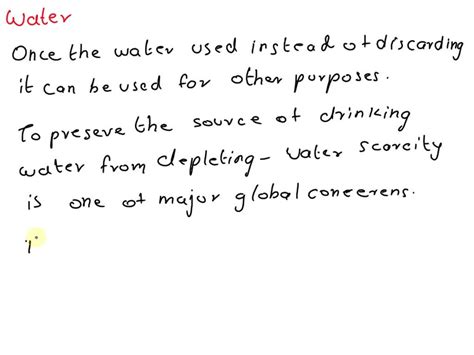 Water
Once the water used instead of discarding
it can be used for other purposes.
To preseve the source of drinking
water from depleting - water scarcity
is one of major global conceerens.